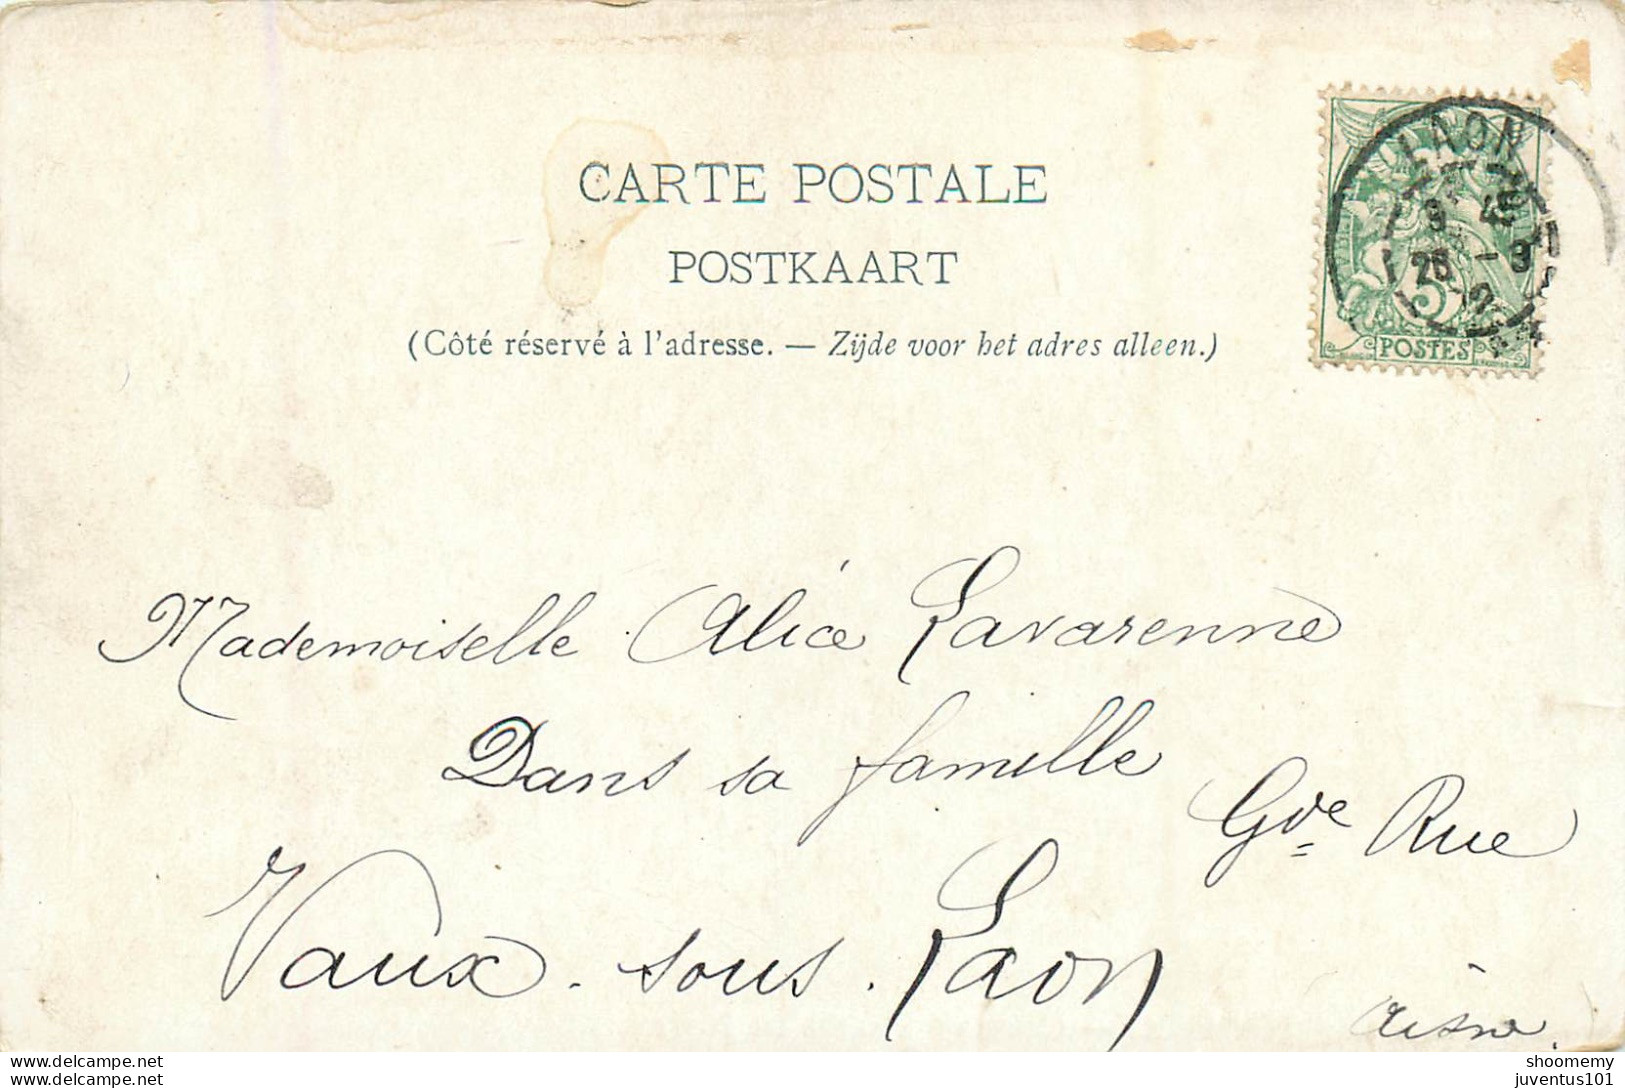 CARTE POSTALE
POSTKAART
(Côté réservé à l'adresse. — Zijde voor het adres alleen.)
LAON
5
POSTES
Mademoiselle Alice Lavarenne
Dans sa famille
Gde Rue
Vaux-sous-Laon
Aisne.
www.delcampe.net
www.delcampe.net
shoomemy
juventus101